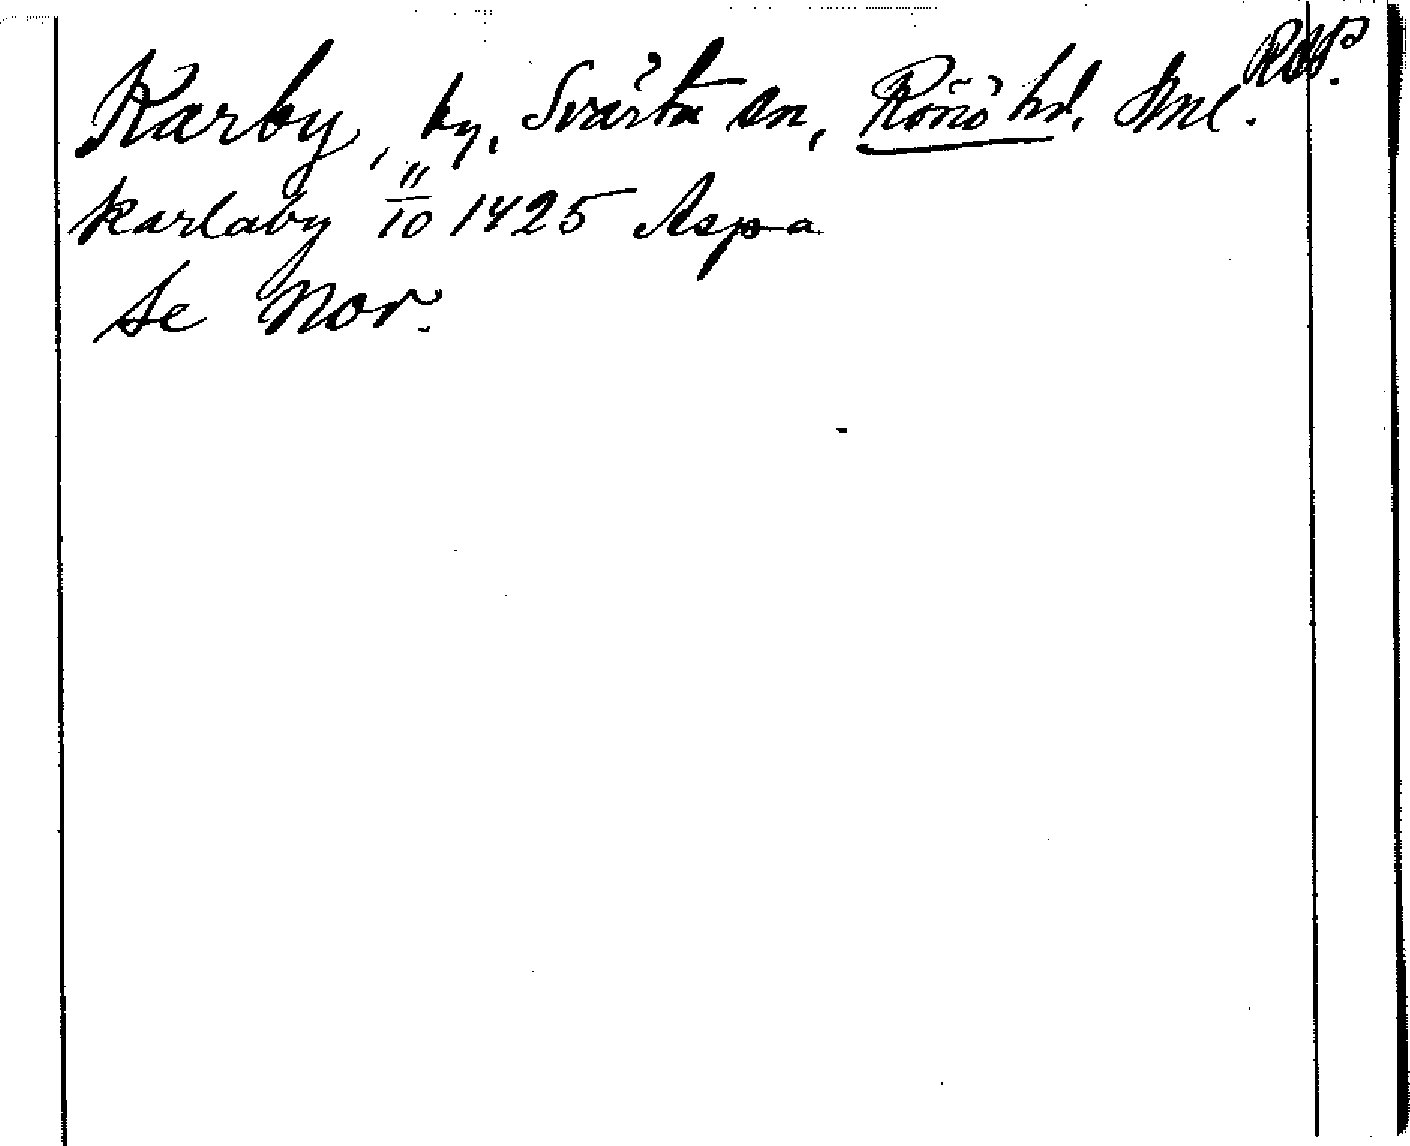 Karby, by, Svärta sn, Rönö hd. Sml.
karlaby 11/10 1425 Aspa
Se Nor.